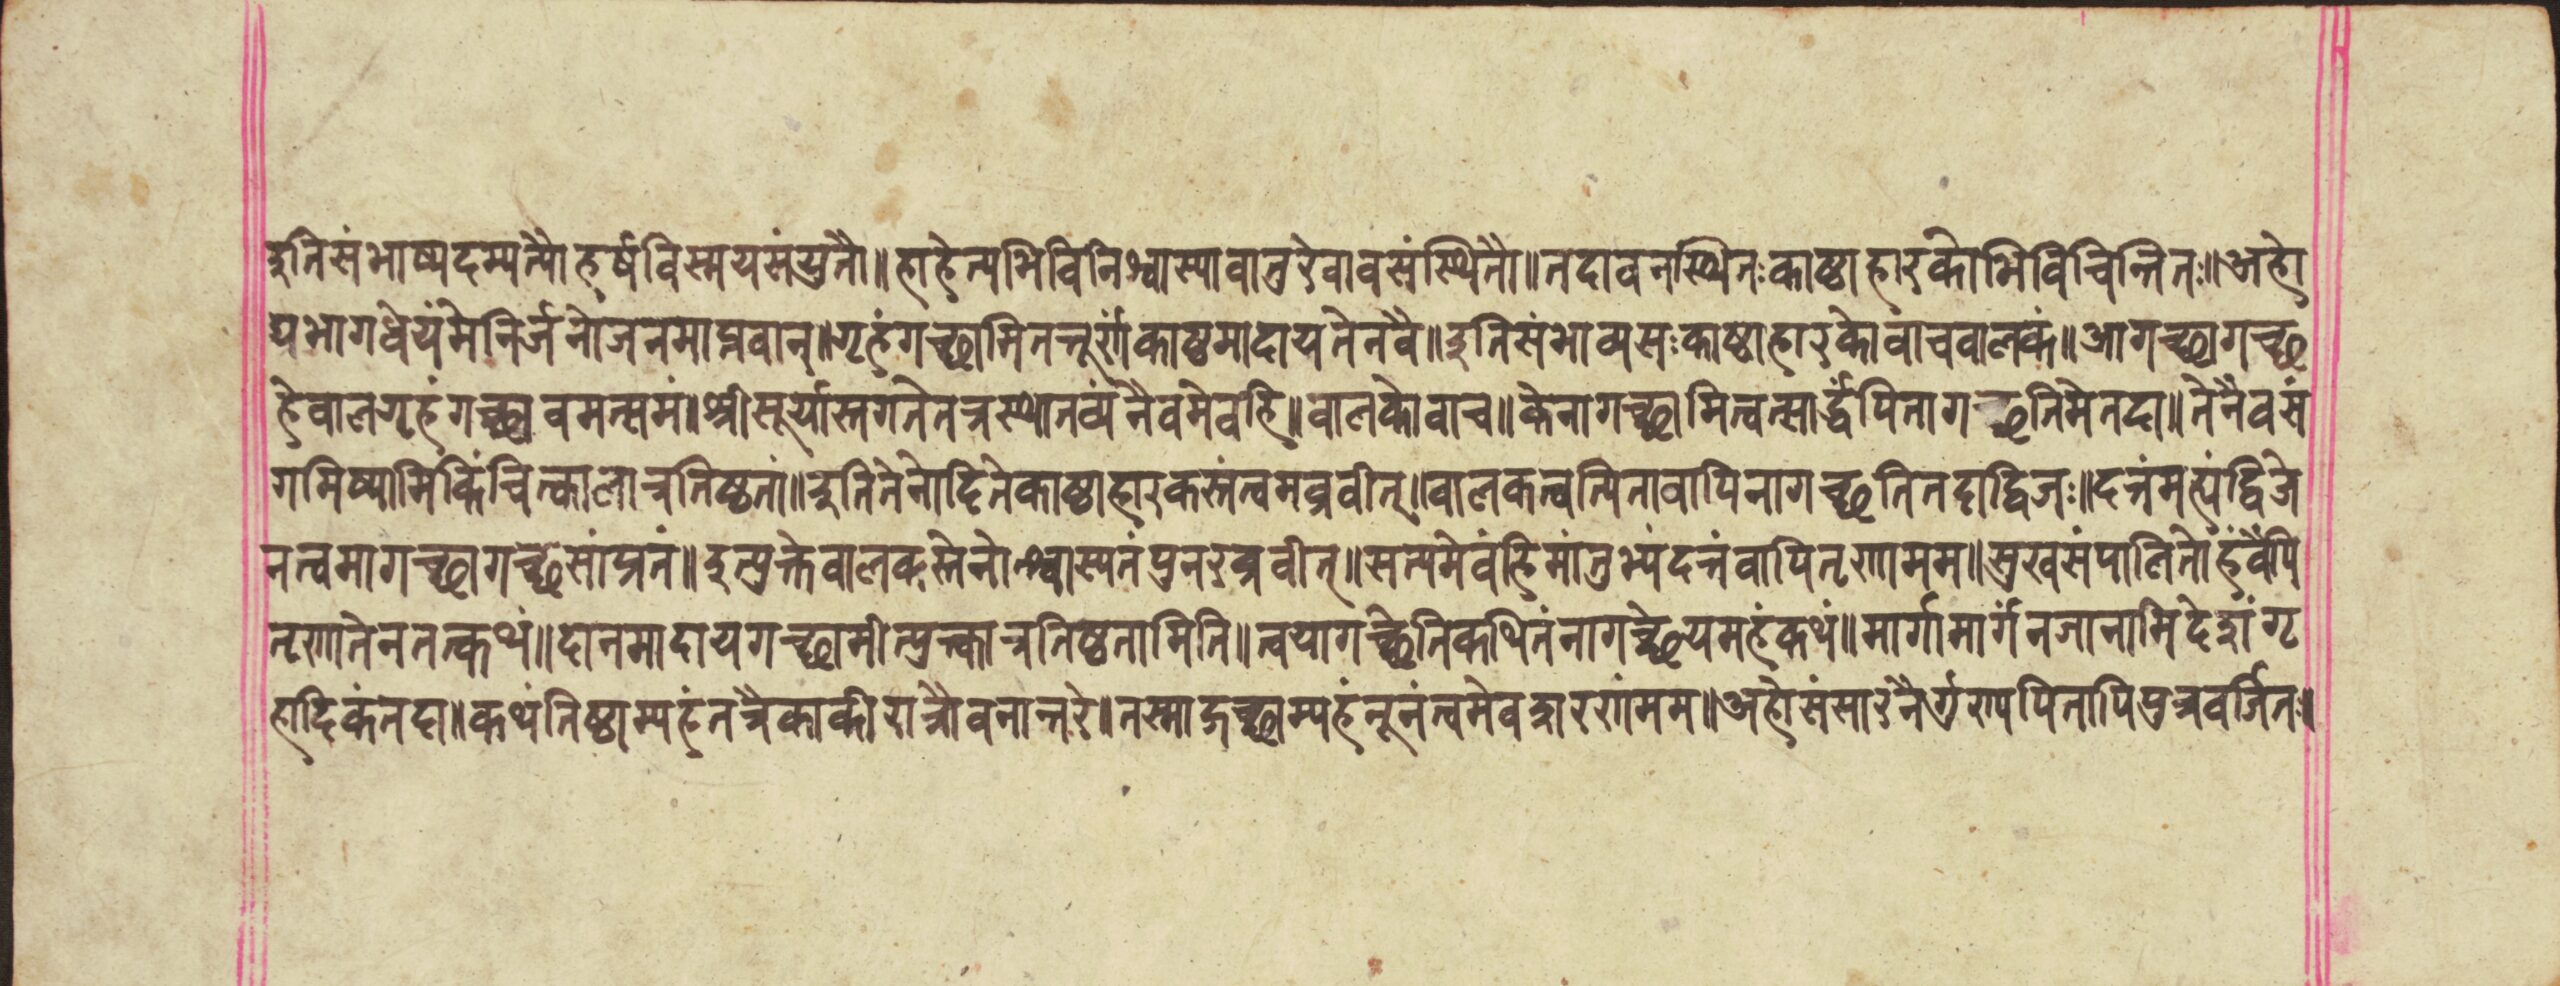 इतिसंभाष्यदम्पत्यौहर्षविस्मयसंयुतौ॥हाहेत्यभिविनिश्वास्यावातुरेवावसंस्थितौ॥तदावनस्थितःकाष्ठाहारकोभिविचिन्तितः॥अहो
द्यभागधेयंमेनिर्जनोजनमाप्नवान्॥गृहंगच्छामितत्तूर्णंकाष्ठमादायतेनवै॥इतिसंभाव्यसःकाष्ठाहारकोवाचवालकं॥आगच्छागच्छ
हेवालगृहंगच्छावमत्समं॥श्रीसूर्यास्तगतेतत्रस्थातव्यंनैवमेवहि॥वालकोवाच॥केनागच्छामित्वत्सार्द्धंपितागच्छतिमेतदा॥तेनैवसं
गमिष्यामिकिंचित्कालात्रतिष्ठतां॥इतितेनोदितेकाष्ठाहारकस्तंत्वमव्रवीत्॥वालकत्वत्पितावापिनागच्छतितदाद्विजः॥दत्तंमह्यंद्विजे
नत्वमागच्छागच्छसांप्रतं॥इत्युक्तेवालकस्तेनोत्श्वास्यतंपुनरव्रवीत्॥सत्यमेवंहिमांतुभ्यंदत्तंवापितृणामम॥सुखसंपालितोहंवैपि
तृणातेनतत्कथं॥दानमादायगच्छामीत्युक्त्कात्रतिष्ठतामिति॥त्वयागच्छेतिकथितंनागच्छेयमहंकथं॥मार्गामार्गंनजानामिदेशंगृ
हादिकंतदा॥कथंतिष्ठाम्यहंतत्रैकाकीरात्रौवनान्तरे॥तस्माद्गच्छाम्यहंनूनंत्वमेवशरणंमम॥अहोसंसारनैर्गुण्यपितापिपुत्रवर्जितः॥